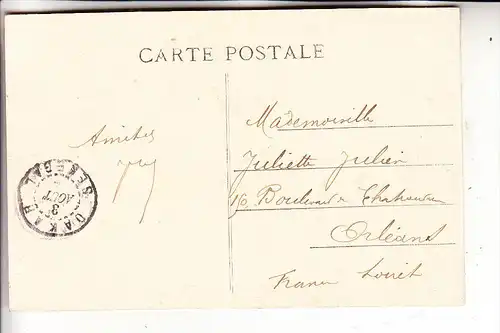 CARTE POSTALE
Amitiés
DAKAR
SÉNÉGAL
3
AOUT
Mademoiselle
Juliette Julien
Boulevard de Chateaudun
Orléans
France Loiret